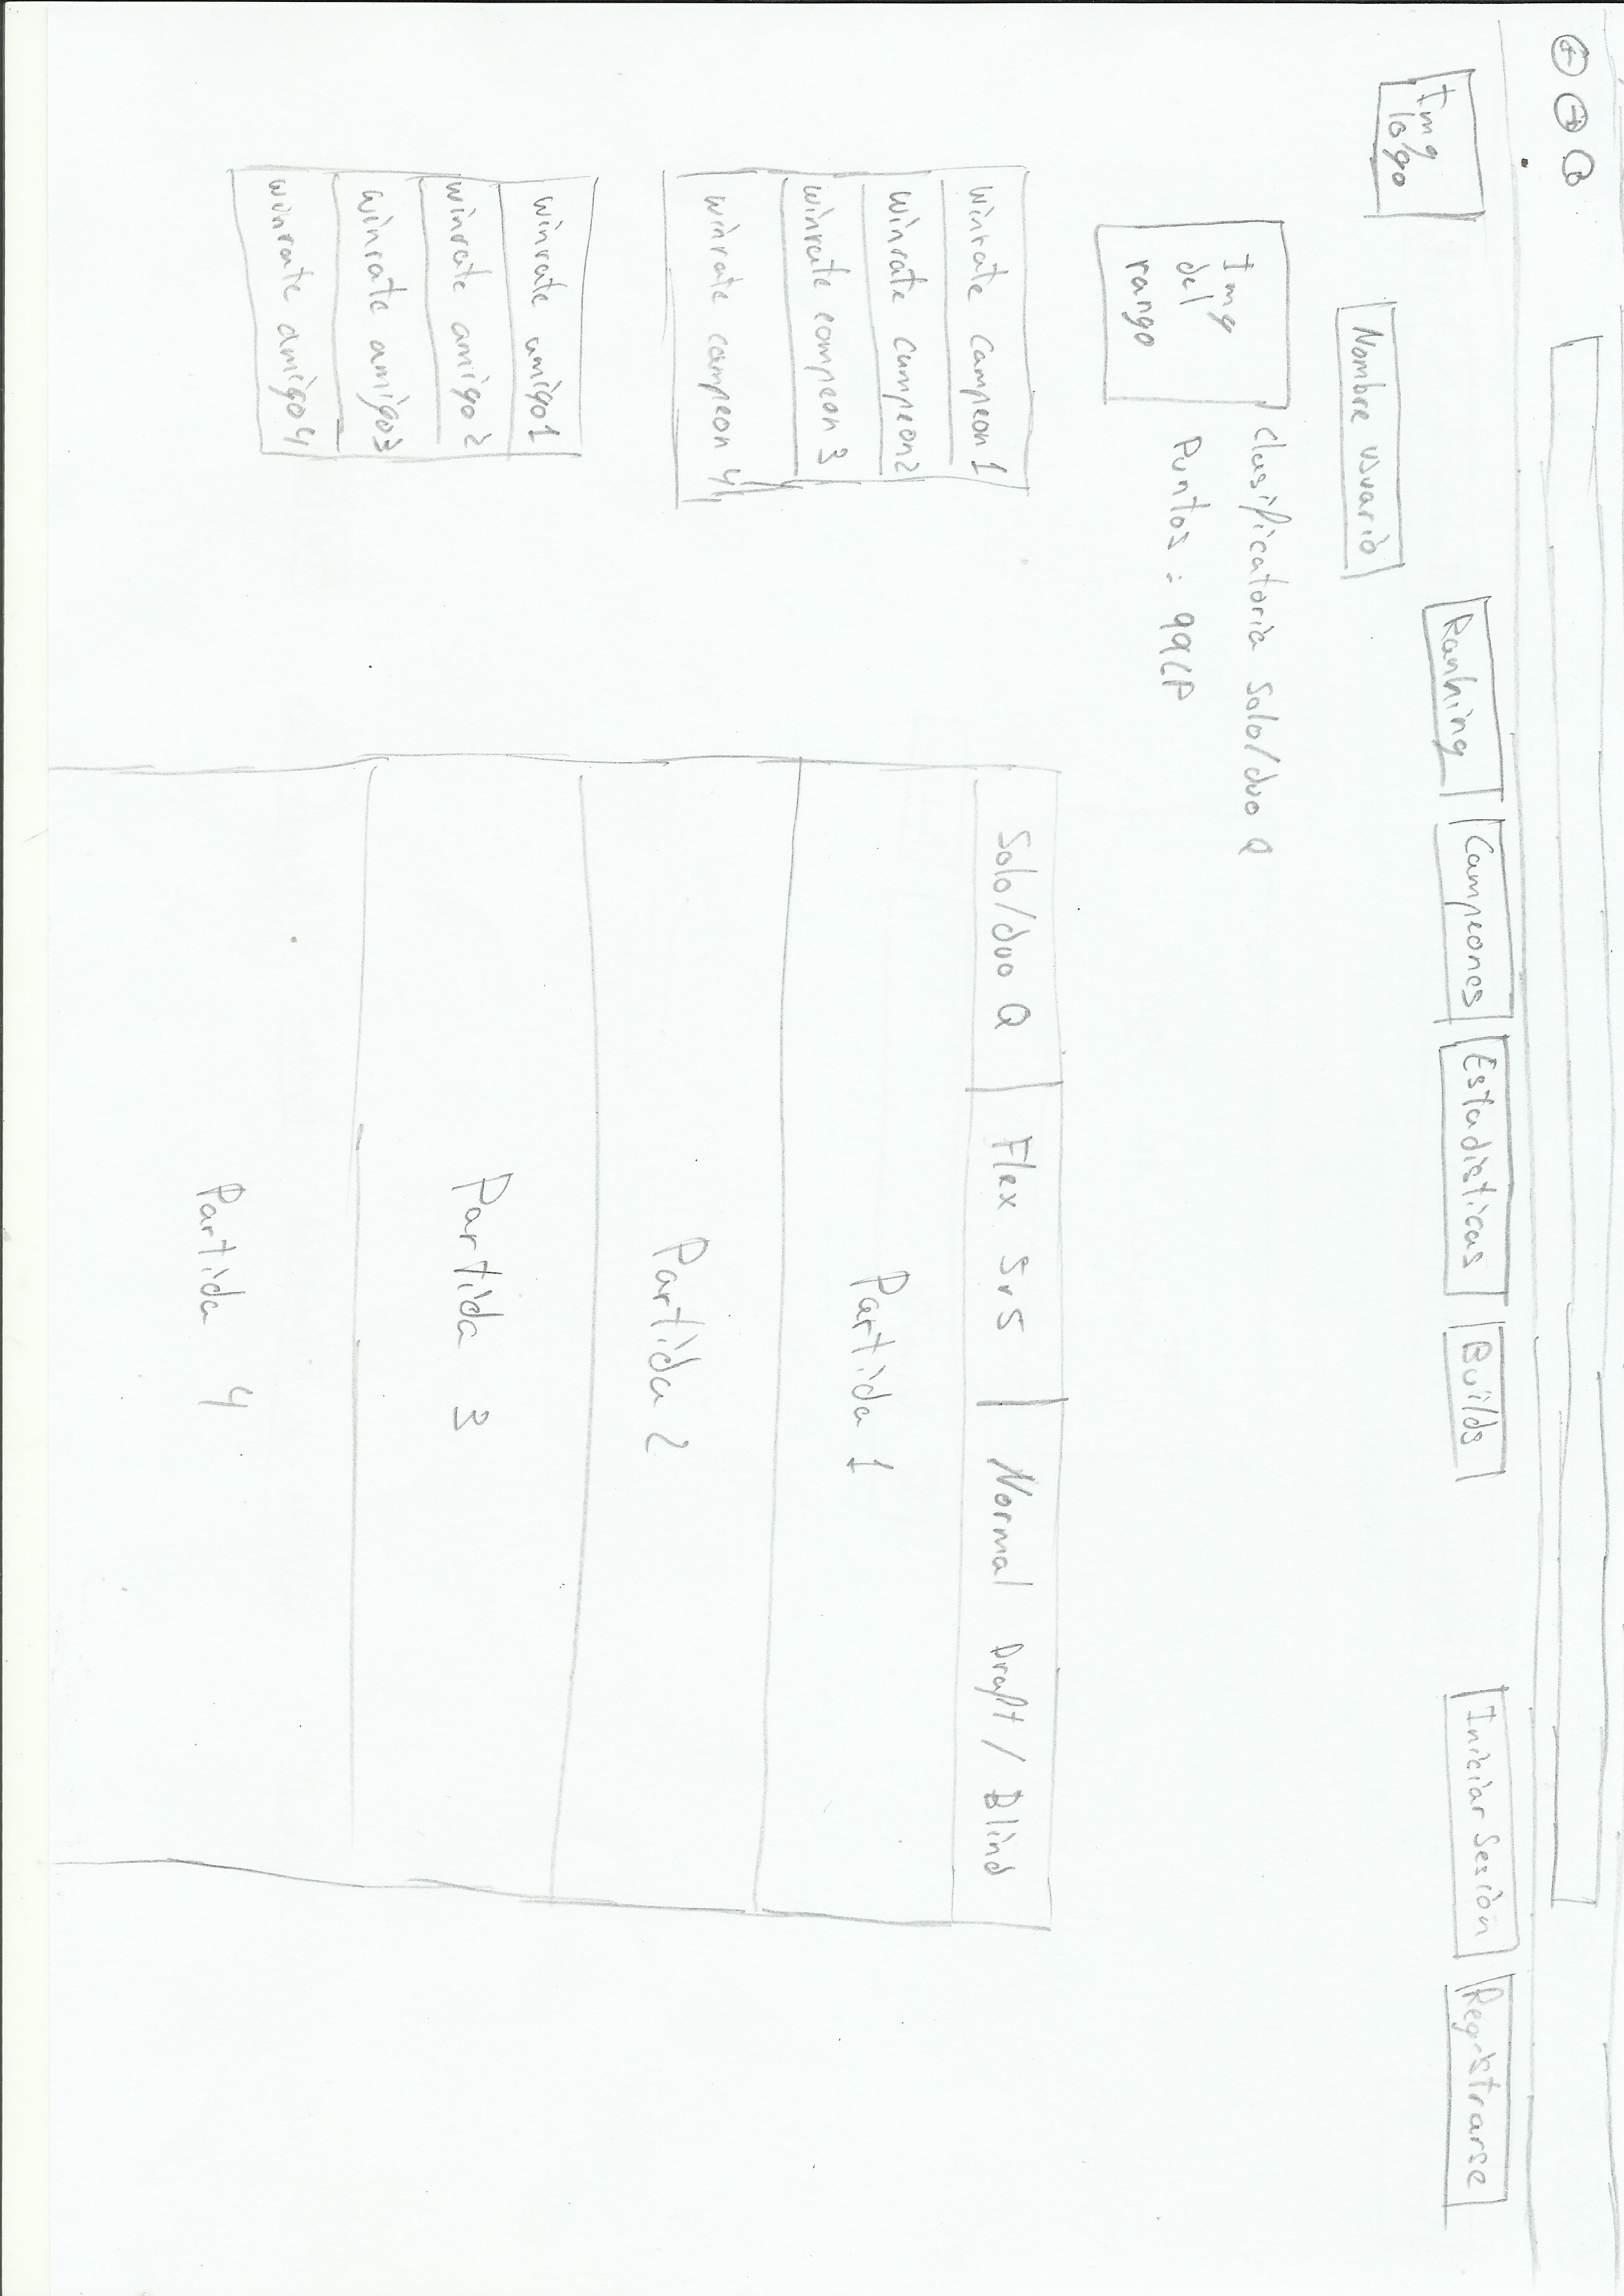 Img
logo
Ranking
Campeones
Estadisticas
Builds
Iniciar Sesión
Registrarse
Nombre usuario
Img
del
rango
Clasificatoria Solo/duo Q
Puntos: 99LP
winrate campeon 1
winrate campeon 2
winrate campeon 3
winrate campeon 4
winrate amigo 1
winrate amigo 2
winrate amigo 3
winrate amigo 4
Solo/duo Q | Flex 5v5 | Normal Draft / Blind
Partida 1
Partida 2
Partida 3
Partida 4